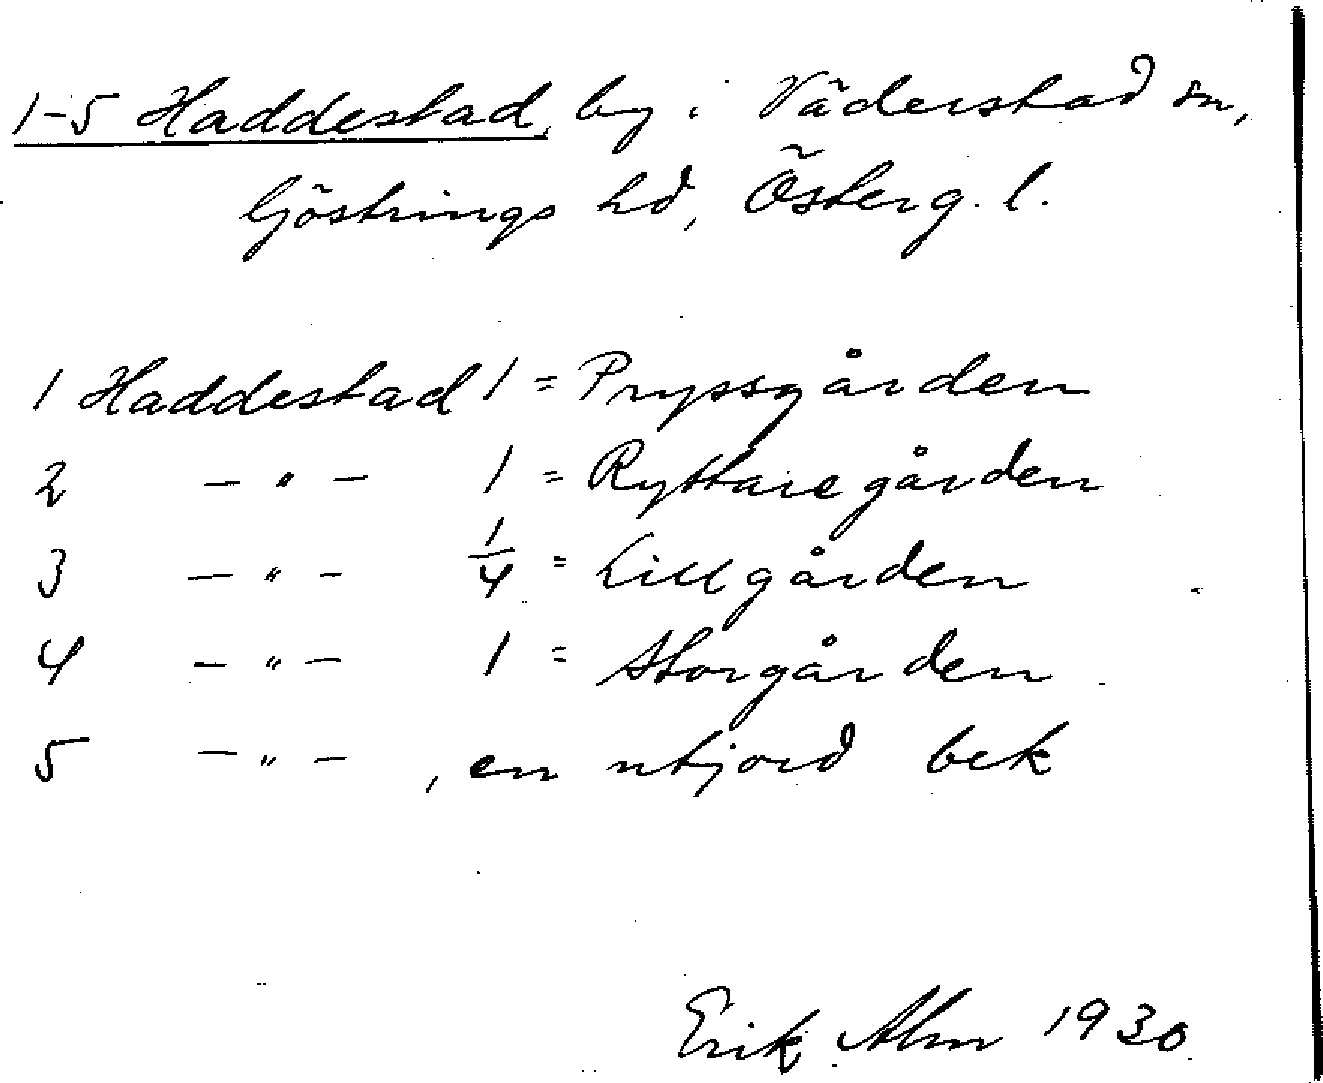 1-5 Haddestad, by i Väderstad sn,
Göstrings hd, Österg. l.
1 Haddestad 1 = Pryssgården
2 - " - 1 = Ryttaregården
3 - " - 1/4 = Lillgården
4 - " - 1 = Storgården
5 - " - , en utjord bek
Erik Alm 1930